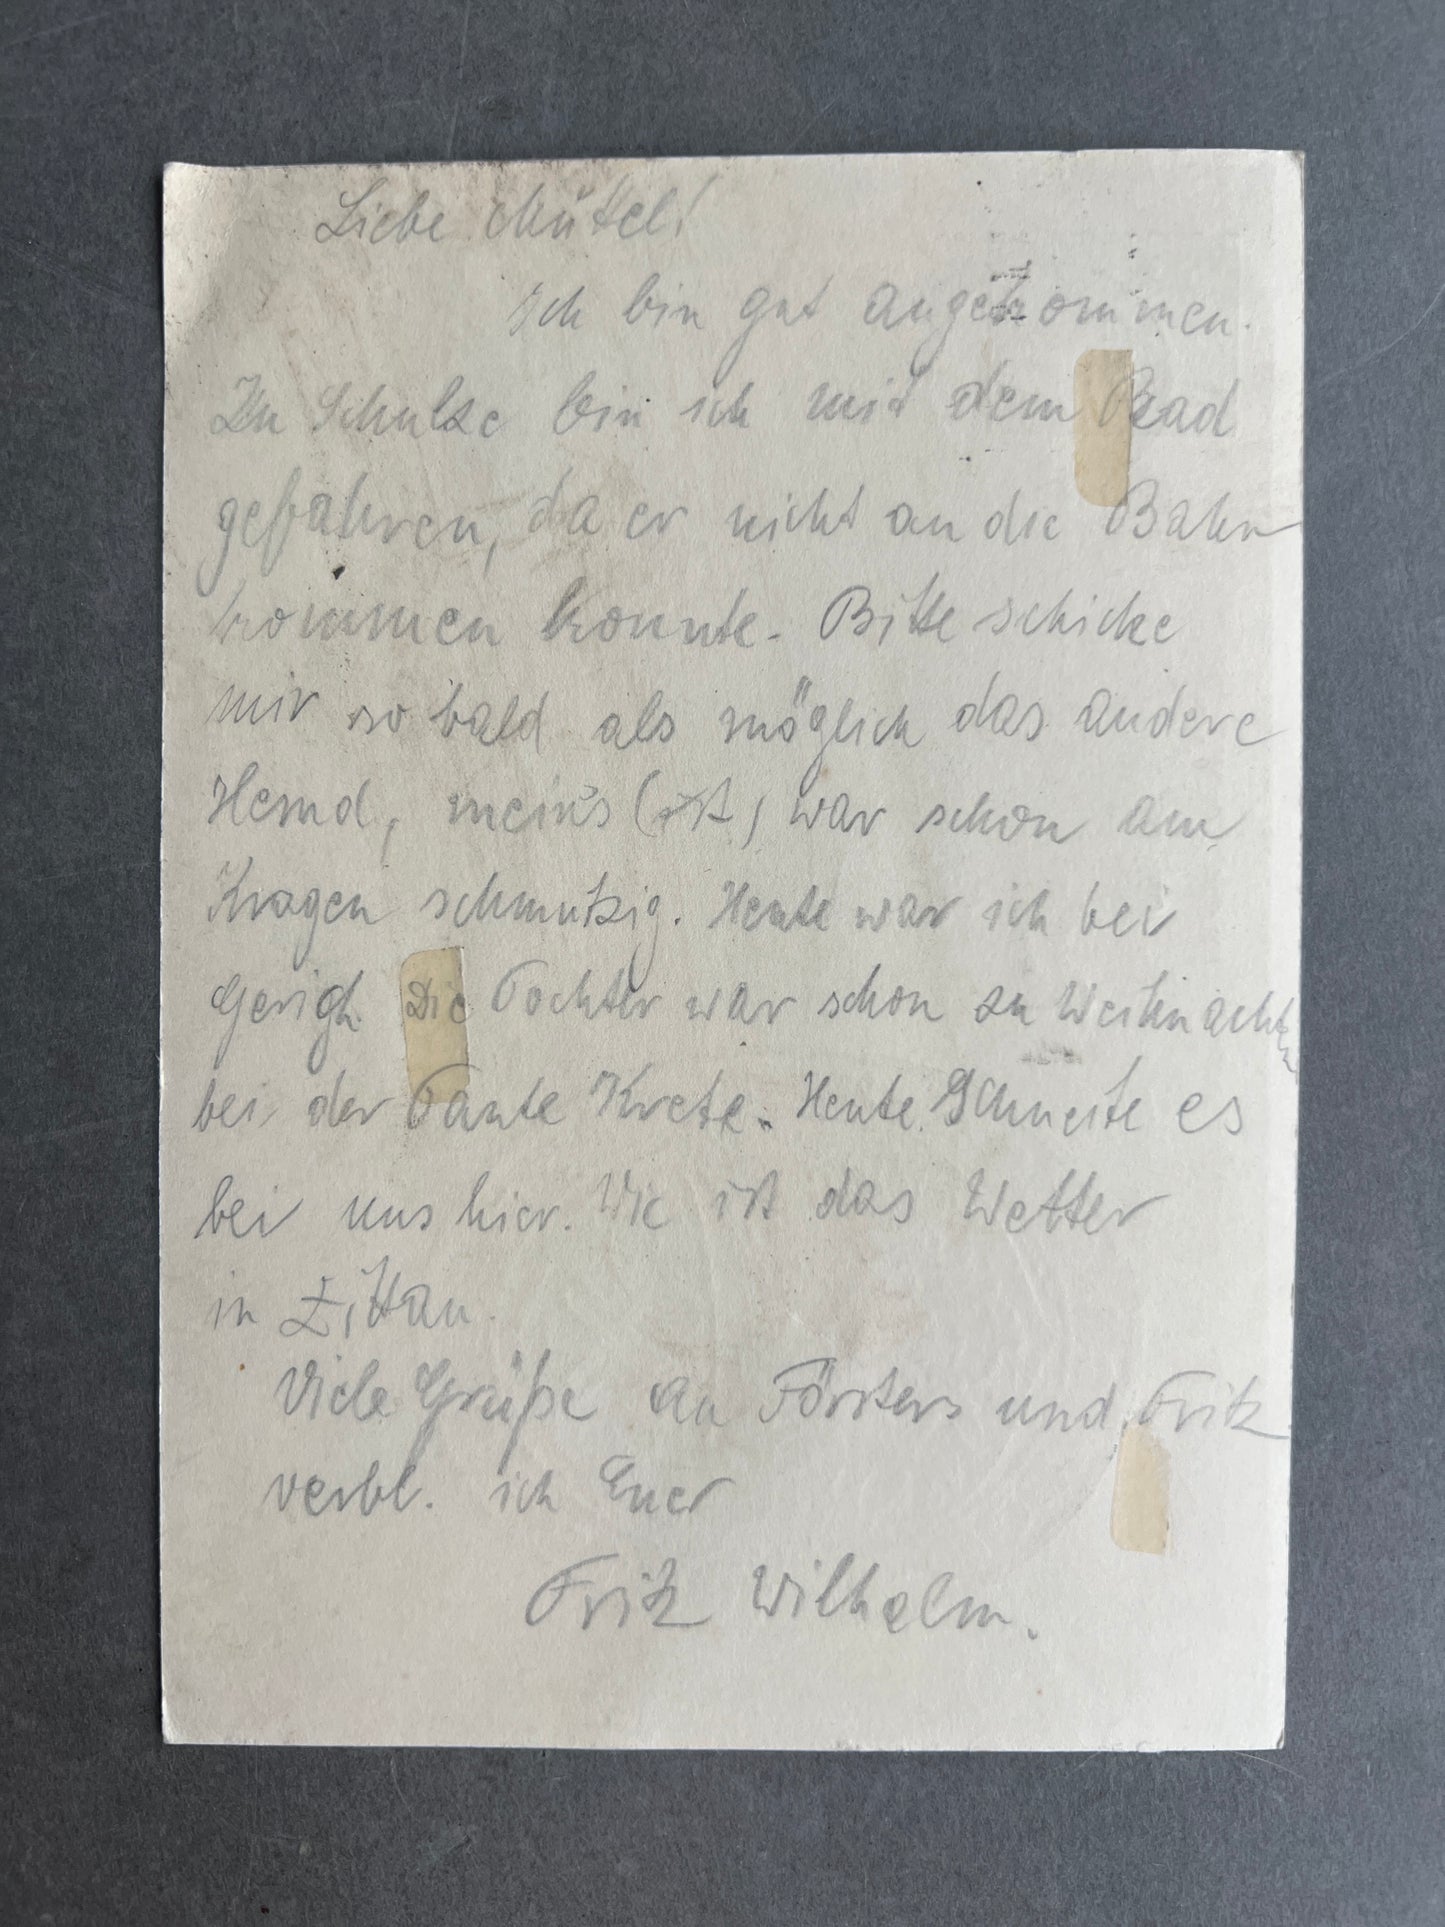 Liebe Mŭttel!
Ich bin gut angekommen.
Zu Schulze bin ich mit dem Rad
gefahren, da er nicht an die Bahn
kommen konnte. Bitte schicke
mir so bald als möglich das andere
Hemd, meins (ist) war schon am
Kragen schmutzig. Heute war ich bei
Gerigh. Die Tochter war schon zu Weihnachten
bei der Tante Krete. Heute Schneite es
bei uns hier. Wie ist das Wetter
in Zittau.
Viele Grüße an Försters und Fritz
verbl. ich Euer
Fritz Wilhelm.